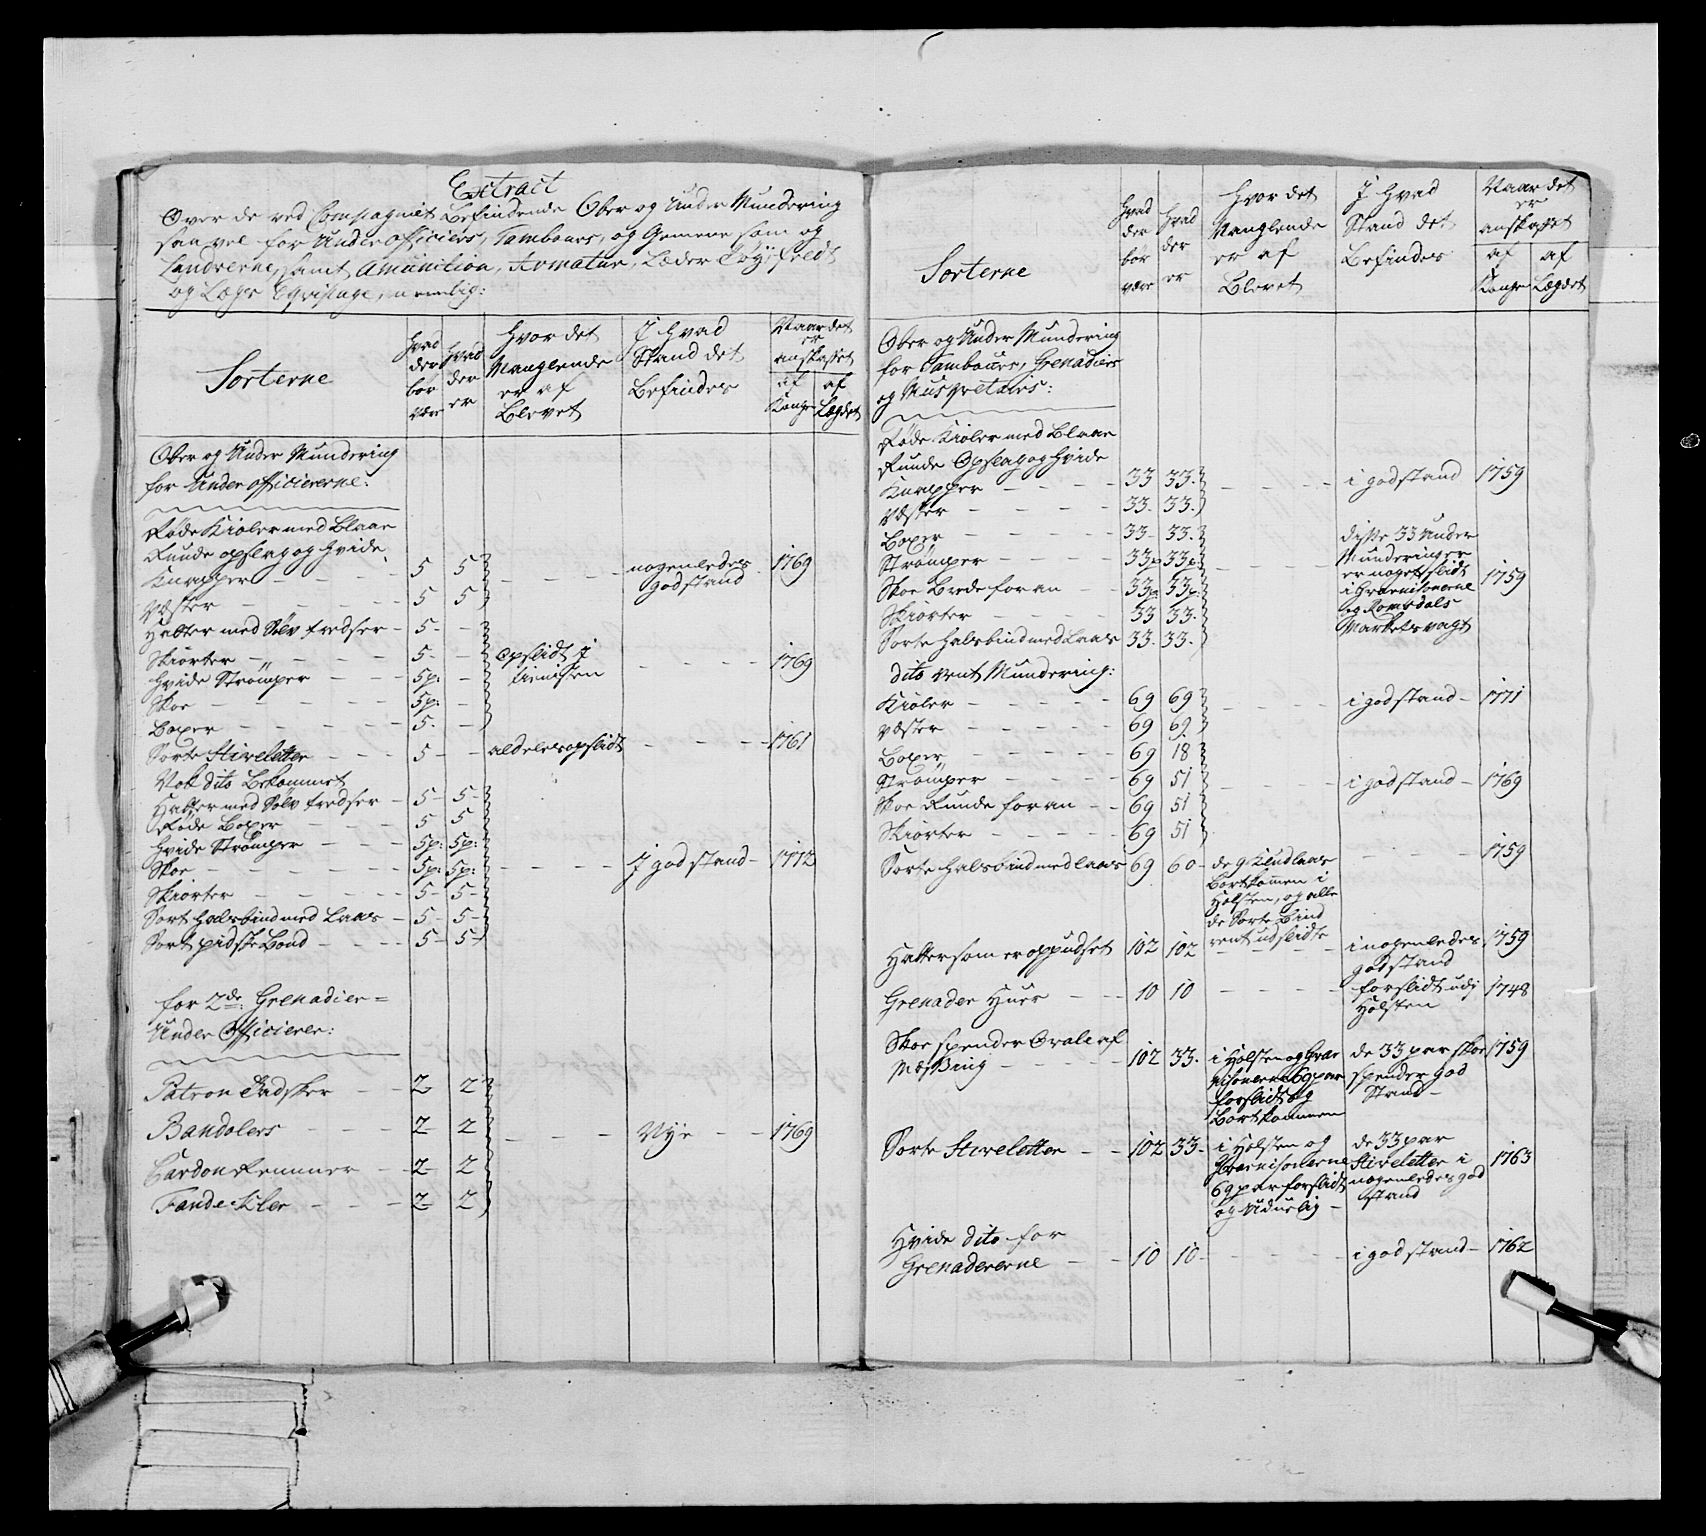 Extract
Over de ved Compagniet Befindende Ober og Under Mundering
saa vel for Underofficiers, Tambours, og Gemene som og
Landverne, samt Amunition, Armatur, Læder Tøy, feldt
og Læger Eqvipage, nemlig:
Sorterne
Hvad der bør være
Hvad der er
Hvor det Manglende er af Blevet
I hvad Stand det Befindes
Naar det er anskaffet
af Konge
af Lægdet
Ober og Under Mundering
for Under officiererne:
Røde Kioler med Blaae
Runde opslag og Hvide
Knapper - - - 5 5 - - - nogenledes god stand 1769
Væster - - - 5 5
Hatter med Sølv tredser - 5 -
Skiorter - - - 5 - - opslidt I tienisten - - - 1769
Hvide Strømper - - 5p: -
Skoe - - - 5p: -
Boxer - - - 5 -
Sorte Stiveletter - 5 - - aldeles opslidt - - - 1761
Nok dito Bekommet
Hatter med Sølv tredser - 5 - 5 -
Røde Boxer - - - 5 5
Hvide Strømper - - 5p: 5p:
Skoe - - - 5p: 5p: - - - I god stand - 1772
Skiorter - - - 5 - 5 -
Sort Halsbind med Laas - 5 - 5 -
Sort pidske Bond - - - 5 - 5 -
for 2de Grenadier=
Under Officierer:
Patron Tasker - 2 2
Bandolers - - - 2 2 - - - Nye - - 1769
Cardon Remmer - - 2 2
Fande Kler - - - 2 2
Sorterne
Hvad der bør være
Hvad der er
Hvor det Manglende er af Blevet
I Hvad Stand det Befindes
Naar det er anskaffet
af Konge
af Lægdet
Ober og Under Mundering
for Tambours, Grenadiers
og Musqvetairs:
Røde Kioler med Blaae
Runde Opslag og Hvide
Knapper - - - 33 33. - - - i god stand 1759
Væster - - - 33. 33.
Boxer - - - 33 - 33.
Strømper - - - 33p 33p: - - - disse 33 Under Munderinger er noget slidt i Guarnisonerne og Romsdals Markets vagt 1759
Skoe Brede for an - - 33p 33p
Skiorter - - - 33 33.
Sorte Halsbind med Laas 33. 33.
dito vent Mundering:
Kioler - - - 69 69 - - - i god stand - 1771
Væster - - - 69 69
Boxer - - - 69 18
Strømper - - - 69 51 - - - i god stand - 1769
Skoe Runde for an - - 69 51
Skiorter - - - 69 51
Sorte Halsbind med laas 69 60 - de 9 Klud laas Bortkommen i Holsten, og alle de Sorte Bind rent udslidte - - 1759
Hatter som er oppudset 102 102 - - - i nogenledes god stand 1759
Grenader Huer - - 10 10 - - - forslidt udj Holsten 1748
Skoe spender Ovale af
Messing - - - 102 33. i Holsten og Guarnisonerne 69 par forslidt og Bortkommen de 33 par skoe spender god Stand - 1759
Sorte Stiveletter - - 102 33 - i Holsten og Guarnisonerne 69 par forslidt og Uduelig - de 33 par Stiveletter i nogenledes god stand 1763
Hvide dito for
Grenadererne - - 10 10 - - - i god stand - 1762